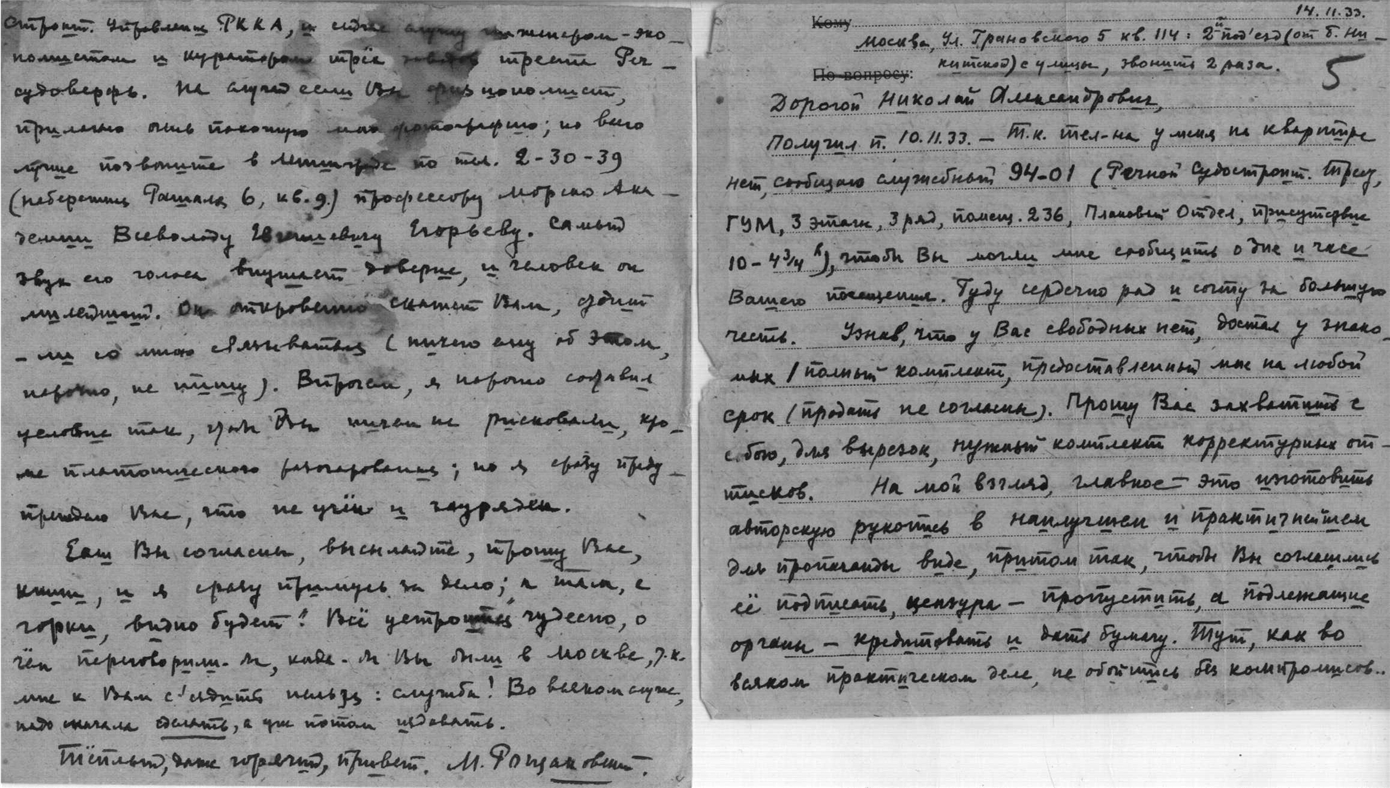 строит. Управлении РККА, и сейчас служу инженером-эко-
номистом и куратором трёх заводов треста Реч-
судоверфь. На случай если Вы физиономист,
прилагаю очень похожую мою фотографию; но всего
лучше позвоните в Ленинграде по тел. 2-30-39
(набережная Рошаля 6, кв. 9.) профессору Морской Ака-
демии Всеволоду Евгеньевичу Егорьеву. Самый
звук его голоса внушает доверие, и человек он
милейший. Он откровенно скажет Вам, следует
-ли со мною связываться (ничего ему об этом,
нарочно, не пишу). Впрочем, я нарочно составил
условие так, чтоб Вы ничем не рисковали, кро-
ме платонического разочарования; но я сразу преду-
преждаю Вас, что не учён и зауряден.
Если Вы согласны, высылайте, прошу Вас,
книги, и я сразу примусь за дело; а там, с
горки, видно будет! Всё устроится чудесно, о
чём переговорили-бы, когда-бы Вы были в Москве, т.к.
мне к Вам с'ездить нельзя: служба! Во всяком случае,
надо сначала сделать, а уж потом издавать.
Тёплый, даже горячий, привет. М. Рощаковский.
14.11.33.
Кому
Москва, Ул. Грановского 5 кв. 114: 2й под'езд (от Б. Ни-
китской) с улицы, звонить 2 раза.
По вопросу:
5
Дорогой Николай Александрович,
Получил п. 10.11.33. — Т.к. тел-на у меня на квартире
нет, сообщаю служебный 94-01 (Речной Судостроит. Трест,
ГУМ, 3 этаж, 3 ряд, помещ. 236, Плановый Отдел, присутствие
10 – 4 3/4 h), чтобы Вы могли мне сообщить о дне и часе
Вашего посещения. Буду сердечно рад и сочту за большую
честь. Узнав, что у Вас свободных нет, достал у знако-
мых 1 полный комплект, предоставленный мне на любой
срок (продать не согласны). Прошу Вас захватить с
собою, для вырезок, нужный комплект корректурных от-
тисков. На мой взгляд, главное – это изготовить
авторскую рукопись в наилучшем и практичнейшем
для пропаганды виде, притом так, чтобы Вы согласились
её подписать, цензура – пропустить, а подлежащие
органы – кредитовать и дать бумагу. Тут, как во
всяком практическом деле, не обойтись без компромисов..